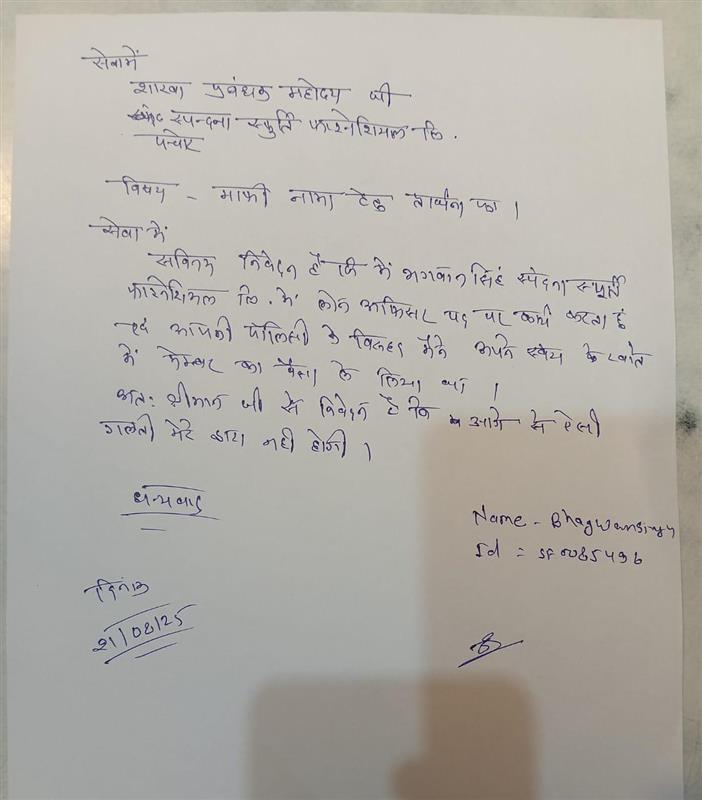 सेवामें
शाखा प्रबंधक महोदय जी
स्पन्दना स्फुर्ति फाइनेंशियल लि.
पचोर
विषय - माफी नामा हेतु
सेवा में
सविनय निवेदन है कि में भगवान सिंह स्पंदना स्फूर्ति
फाइनेंशियल लि. में लोन आफिसर पद पर कार्य करता हुं
एवं आपकी पॉलिसी के विरुद्ध मैने अपने स्वंय के खाते
में मेम्बर का पैसा ले लिया था।
अतः श्रीमान जी से निवेदन है कि आगे से ऐसी
गलती मेरे द्वारा नही होगी।
धन्यवाद
Name - Bhagwansingh
Id = SF0085436
दिनांक
21/08/25